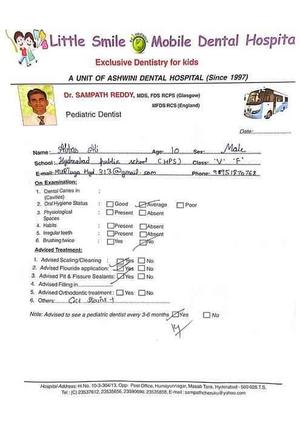 Little Smile Mobile Dental Hospita
Exclusive Dentistry for kids
A UNIT OF ASHWINI DENTAL HOSPITAL (Since 1997)
Dr. SAMPATH REDDY, MDS, FDS RCPS (Glasgow)
MFDS RCS (England)
Pediatric Dentist
Date:
Name: Abbas Ali Age: 10 Sex: Male
School: Hyderabad public school (HPS) Class: 'V' 'F'
E-mail: @gmail.com Phone:
On Examination:
1. Dental Caries in :
(Cavities)
2. Oral Hygiene Status : Good Average Poor
3. Physiological : Present Absent
Spaces
4. Habits : Present Absent
5. Irregular teeth : Present Absent
6. Brushing twice : Yes No
Advised Treatment:
1. Advised Scaling/Cleaning : Yes No
2. Advised Flouride application: Yes No
3. Advised Pit & Fissure Sealants: Yes No
4. Advised Filling in
5. Advised Orthodontic treatment : Yes No
6. Others:
Note: Advised to see a pediatric dentist every 3-6 months Yes No
Hospital Address: H.No. 10-3-304/13, Opp. Post Office, Humayunnagar, Masab Tank, Hyderabad - 500 028 T.S.
Tel: (C) 23537612, 23535656, 23590690, 23535858, E-mail: sampathcheeku@yahoo.com